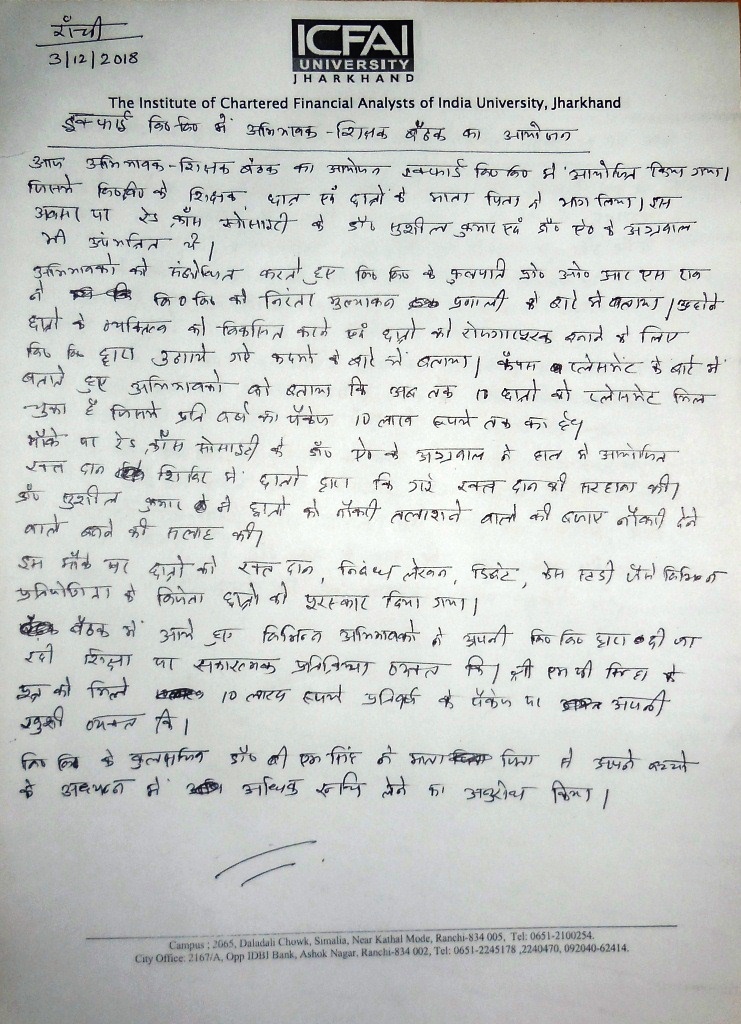 राँची
3/12/2018
ICFAI
UNIVERSITY
JHARKHAND
The Institute of Chartered Financial Analysts of India University, Jharkhand
इक्फाई वि० वि० में अभिभावक-शिक्षक बैठक का आयोजन
आज अभिभावक-शिक्षक बैठक का आयोजन इक्फाई वि० वि० में आयोजित किया गया।
जिसमें वि०वि० के शिक्षक, छात्र एवं छात्रों के माता पिता ने भाग लिया। इस
अवसर पर रेड क्रॉस सोसाइटी के डॉ० सुशील कुमार एवं डॉ० ऐ० के अग्रवाल
भी उपस्थित थे।
अभिभावकों को संबोधित करते हुए वि० वि० के कुलपति प्रो० ओ० आर एस राव
ने वि० वि० की निरंतर मुल्यांकन प्रणाली के बारे में बताया। उन्होंने
छात्रों के व्यक्तित्व को विकसित करने एवं छात्रों को रोजगारपरक बनाने के लिए
वि० वि० द्वारा उठाये गये कदमों के बारे में बताया। कैंपस प्लेसमेंट के बारे में
बताते हुए अभिभावकों को बताया कि अब तक 10 छात्रों को प्लेसमेंट मिल
चुका है जिसमें प्रति वर्ष का पैकेज 10 लाख रूपये तक का है।
मौके पर रेड क्रॉस सोसाइटी के डॉ० ऐ० के अग्रवाल ने हाल में आयोजित
रक्त दान शिविर में छात्रों द्वारा कि गये रक्त दान की सराहना की।
डॉ० सुशील कुमार ने छात्रों को नौकरी तलाशने वालों की बजाए नौकरी देने
वाले बनने की सलाह की।
इस मौके पर छात्रों को रक्त दान, निबंध लेखन, डिबेट, केस स्टडी जैसे विभिन्न
प्रतियोगिता के विजेता छात्रों को पुरस्कार दिया गया।
बैठक में आये हुए विभिन्न अभिभावकों ने अपनी वि० वि० द्वारा दी जा
रही शिक्षा पर सकारात्मक प्रतिक्रिया व्यक्त कि। श्री एम पी सिन्हा के
पुत्र को मिले 10 लाख रूपये प्रतिवर्ष के पैकेज पर अपनी
खुशी व्यक्त कि।
वि० वि० के कुलसचिव डॉ० बी एम सिंह ने माता पिता से अपने बच्चों
के अध्ययन में अधिक रूचि लेने का अनुरोध किया।
Campus ; 2065, Daladali Chowk, Simalia, Near Kathal Mode, Ranchi-834 005, Tel: 0651-2100254.
City Office: 2167/A, Opp IDBI Bank, Ashok Nagar, Ranchi-834 002, Tel: 0651-2245178 ,2240470, 092040-62414.